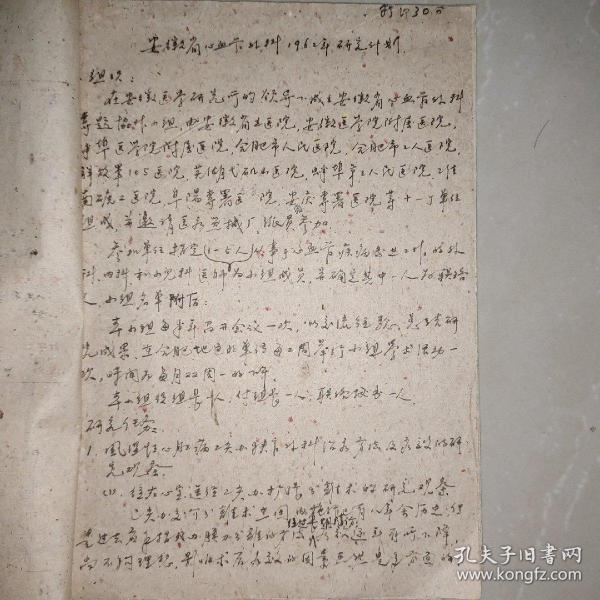 印30份
安徽省心血管外科1962年研究计划
组织:
在安徽医学研究所的领导下成立安徽省心血管外科
专题协作小组,由安徽省立医院,安徽医学院附属医院,
蚌埠医学院附属医院,合肥市人民医院,合肥市工人医院,
解放军105医院,芜湖弋矶山医院,蚌埠第二人民医院,淮
南矿工医院,阜阳专署医院,安庆专署医院等十一个单位
组成,并邀请医疗器械厂派员参加
参加单位指定(1-5人)从事于心血管疾病工作的外
科、内科、和小儿科医师为小组成员,并确定其中一人为联络
人,小组名单附后:
本小组每半年召开会议一次,以交流经验,总结研
究成果,在合肥地区的单位每二周举行小组学术活动一
次,时间为每月双周一的下午.
本小组设组长一人,付组长一人,联络秘书一人.
研究任务:
1.风湿性心脏病二尖瓣狭窄外科治疗方法及疗效的研
究观察.
(1).经左心室逕路二尖瓣扩张分离术的研究观察
二尖瓣交界分离术在国内施行已有八年余历史,
孔夫子旧书网
www.kongfz.com